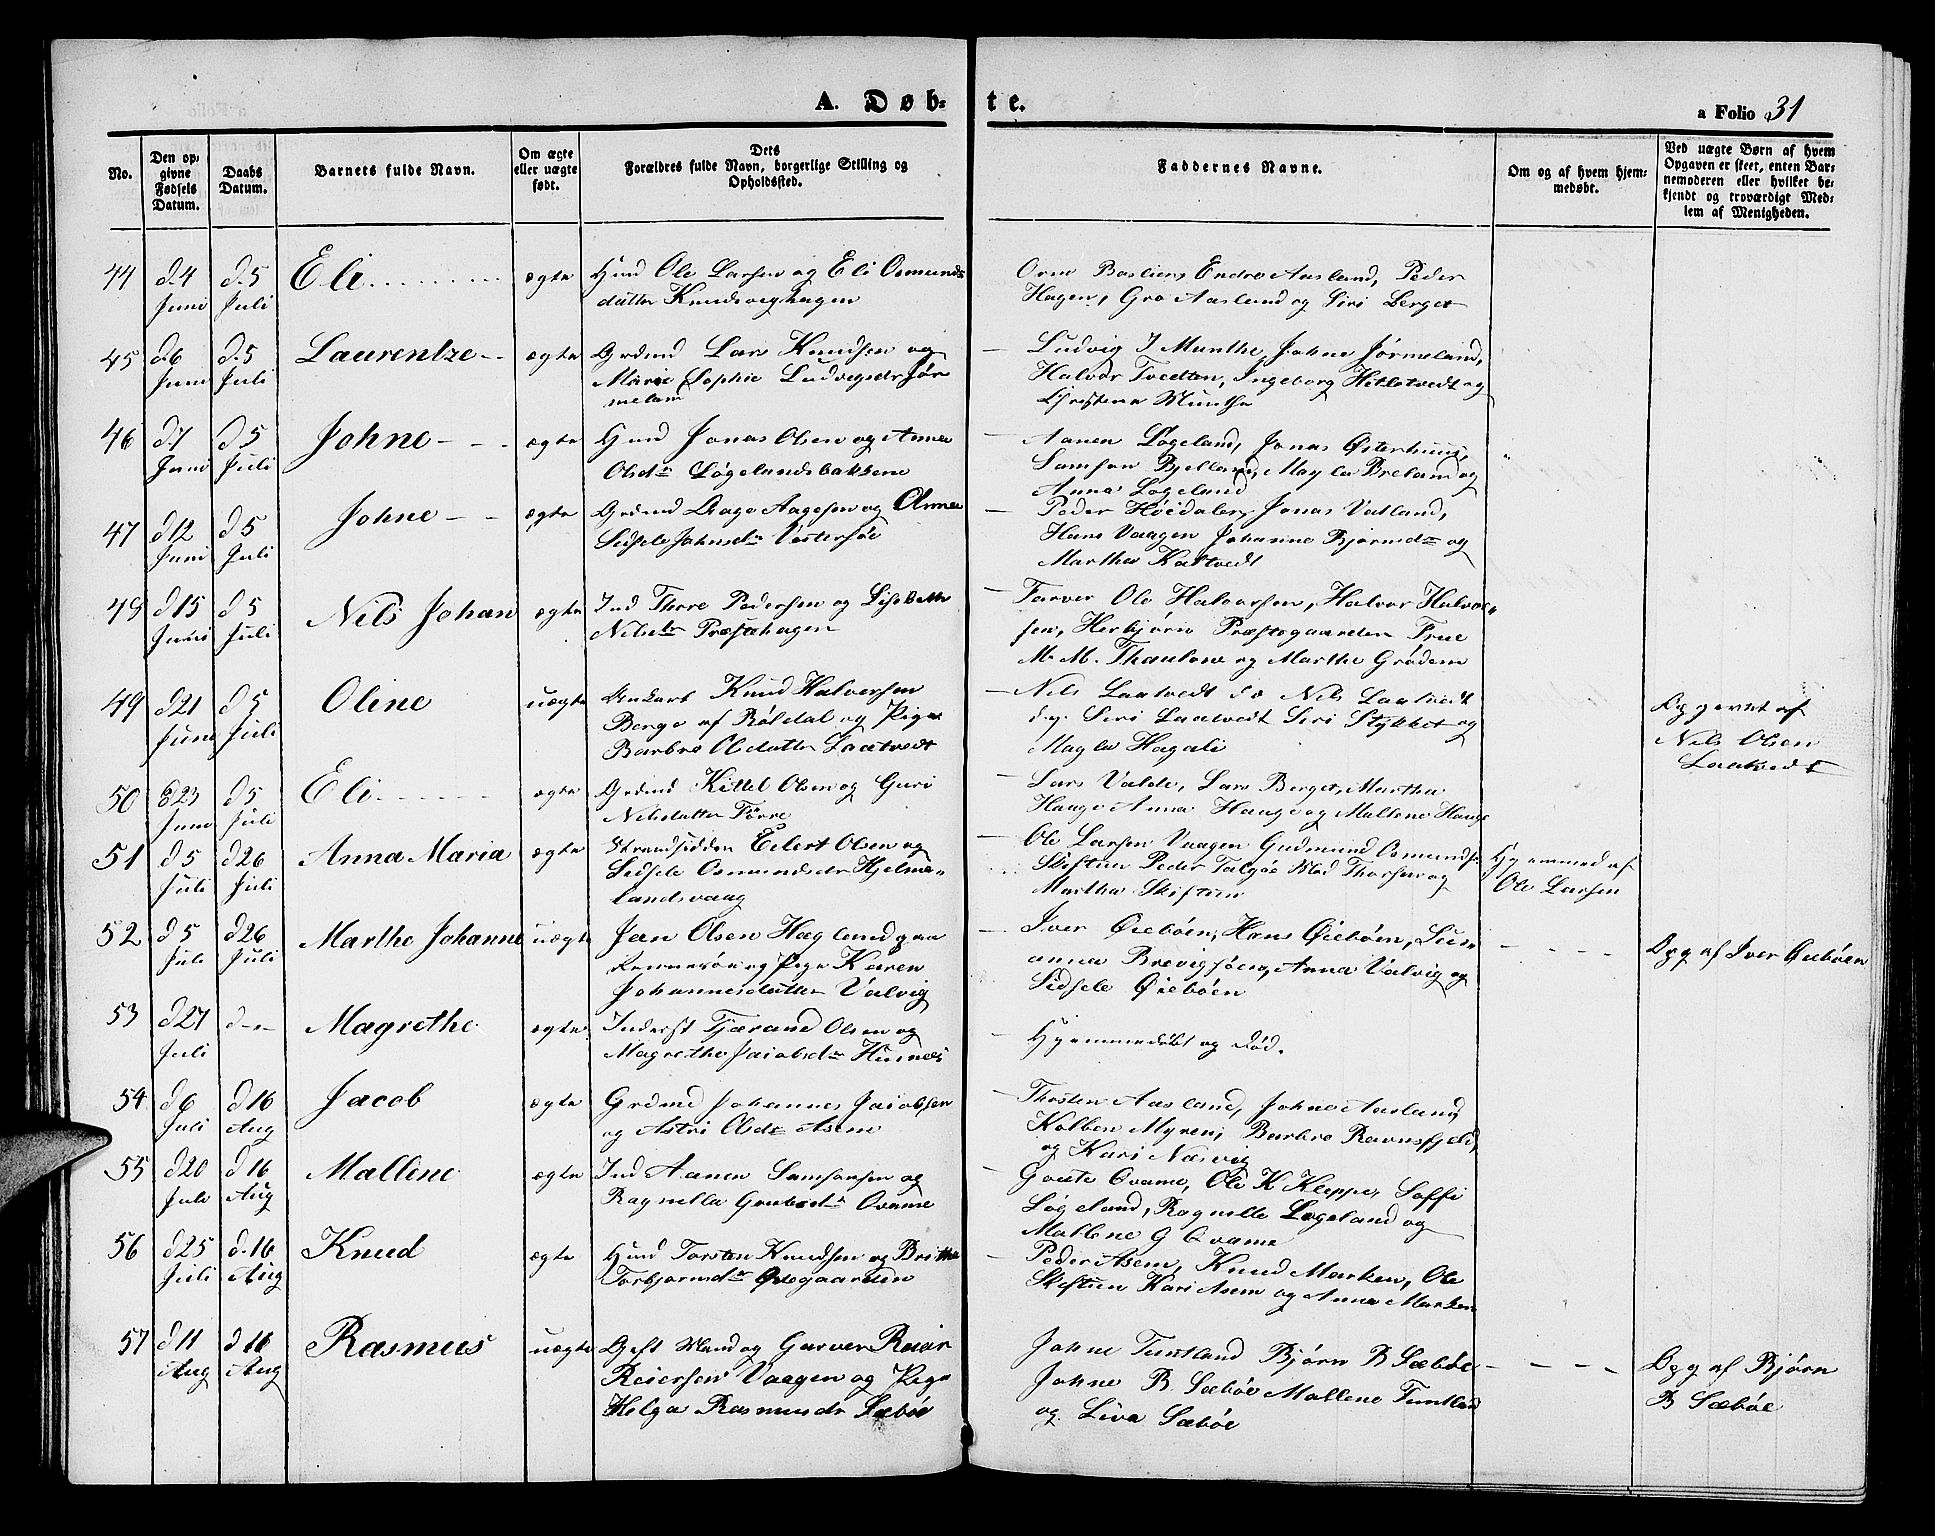 A. Døb-
te.
a Folio 31
No.
Den op-
givne
Fødsels
Datum.
Daabs
Datum.
Barnets fulde Navn.
Om ægte
eller uægte
født.
Dets
Forældres fulde Navn, borgerlige Stilling og
Opholdssted.
Faddernes Navne.
Om og af hvem hjem-
medøbt.
Ved uægte Børn af hvem
Opgaven er skeet, enten Bar-
nemoderen eller hvilket be-
kjendt og troværdigt Med-
lem af Menigheden.
44 d.4 d.5 Eli ægte Hmd Ole Larsen og Eli Osmunds
Juni Juli datter Knudsveghagen
Orm Endre Aasland, Peder
Hagen, Gro Aasland og Siri Berget
45 d.6 d.5 Laurentze ægte Grdmd Lars Knudsen og
Juni Juli Marie Sophie Ludvigsdr Jør
meland
Ludvig J Munthe, Johne Jørmeland,
Halvor Tvedten, Ingeborg og
Christena Munthe
46 d.7 d.5 Johne ægte Hmd Jonas Olsen og Anna
Juni Juli Olsdr Løgelandsbakkene
Aanen Løgeland, Jonas Østerhuus,
Samson Bjelland, Mayla Breland og
Anna Løgeland
47 d12 d5 Johne ægte Grdmd Aage Aagesen og Anna
Juni Juli Sidsele Johnsdr Vostersøe
Peder Høiedalen, Jonas Vatland,
Hans Vaagen Johanne Bjørnsdr og
Martha Kaltvedt
49 d15 d5 Nils Johan ægte Ind Thore Pedersen og Lisebeth
Juni Juli Nilsdr Præstehagen
Farver Ole Halvorsen, Halvor Halvor-
sen, Herbjørn Præstegaarden Frue
M. M. Thaulow og Marthe Grødem
49 d21 d5 Oline uægte Unkarl Knud Halversen
Juni Juli Berge af Røldal og Pige
Barbro Olsdatter Laatvedt
Nils Laatvedt Nils Laatvedt
Siri Laatvedt Siri Stykket og
Mayla Hagali
Opgevet af
Nils Olsen
Laatvedt
50 d23 d5 Eli ægte Grdmd Kittel Olsen og Guri
Juni Juli Nilsdatter Førre
Lars Valde, Lars Berget, Martha
Hauge Anna Hauge og Mallene Hauge
51 d5 d26 Anna Maria ægte Strandsidder Eilert Olsen og
Juli Juli Sidsele Osmundsdr Hjelme-
landsvaag
Ole Larsen Vaagen Gudmund Osmunds
Skiftun Peder Talgøe Mad Thorsen og
Martha Skiftun
Hjemmed af
Ole Larsen
52 d5 d26 Marthe Johanne uægte Jan Olsen Hægland paa
Juli Juli Rennesøe og Pige Karen
Johannesdatter Valvig
Iver Øiebøen, Hans Øiebøen, Sus-
anna Brevigsøen, Anna Valvig og
Sidsele Øiebøen
Opg af Iver Øiebøen
53 d27 d Magrethe ægte Inderst Tjærand Olsen og
Juli Magrethe Jacobsdr Husnes
Hjemmedøbt og død.
54 d6 d16 Jacob ægte Grdmd Johannes Jacobsen
Juli Aug og Astri Olsdr Asem
Thosten Aasland, Johne Aasland
Kolben Myren, Barbro Ravnsfjeld,
og Kari Næsvig
55 d20 d16 Mallene ægte Ind Aanen Samsonsen og
Juli Aug Ragnella Goutesdr Ovame
Goute Ovame, Ole K Kleppe, Soffi
Løgeland, Ragnelle Løgeland og
Mallene G Ovame
56 d25 d.16 Knud ægte Hmd Torsten Knudsen og Britha
Juli Aug Torbjørnsdr Ødegaarden
Peder Asem, Knud Marken, Ole
Skiftun Kari Asem og Anna Marken
57 d11 d16 Rasmus uægte Gift Mand og Garver Reier
Aug Aug Reiersen Vaagen og Pige
Helga Rasmusdr Sæbøe
Johne Tuntland Bjørn B Sæbøe
Johne B Sæbøe Mallene Tuntland
og Liva Sæbøe
Opg af Bjørn
B Sæbøe